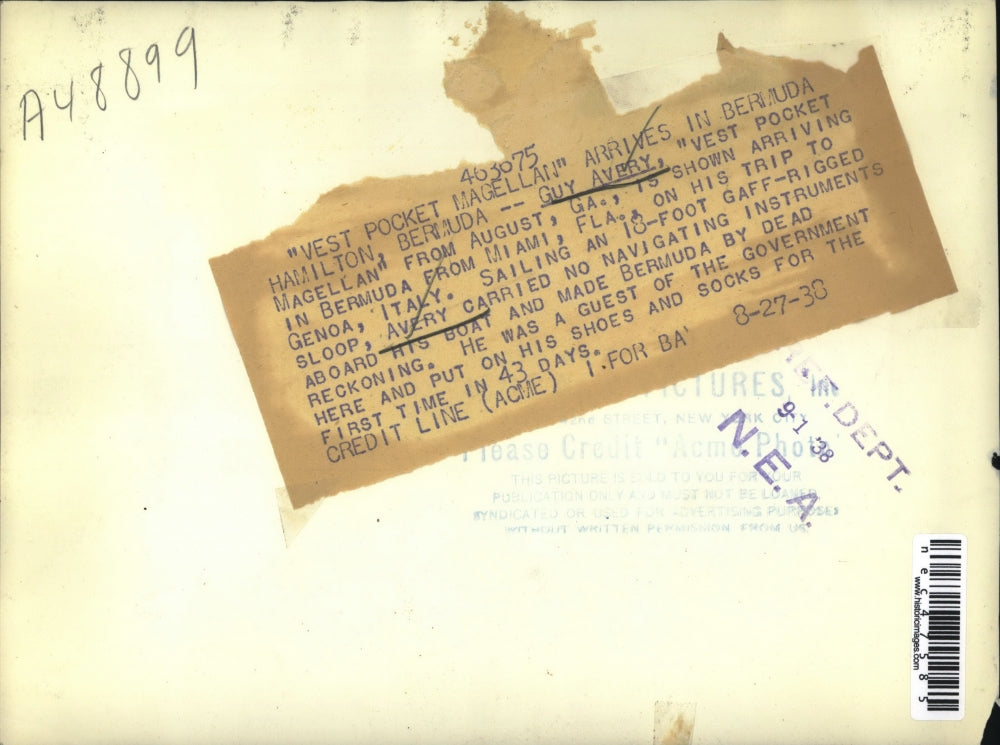 A48899
463675
"VEST POCKET MAGELLAN" ARRIVES IN BERMUDA
HAMILTON, BERMUDA -- GUY AVERY, "VEST POCKET
MAGELLAN" FROM AUGUST, GA., IS SHOWN ARRIVING
IN BERMUDA FROM MIAMI, FLA., ON HIS TRIP TO
GENOA, ITALY. SAILING AN 18-FOOT GAFF-RIGGED
SLOOP, AVERY CARRIED NO NAVIGATING INSTRUMENTS
ABOARD HIS BOAT AND MADE BERMUDA BY DEAD
RECKONING. HE WAS A GUEST OF THE GOVERNMENT
HERE AND PUT ON HIS SHOES AND SOCKS FOR THE
FIRST TIME IN 43 DAYS.
CREDIT LINE (ACME) FOR BA 8-27-38
DEPT.
9-1 '38
N.E.A.
PICTURES, INC
STREET, NEW YORK CITY
Please Credit "Acme Photo"
THIS PICTURE IS SOLD TO YOU FOR YOUR
PUBLICATION ONLY AND MUST NOT BE LOANED
SYNDICATED OR USED FOR ADVERTISING PURPOSES
WITHOUT WRITTEN PERMISSION FROM US.
nec47585
www.historicimages.com